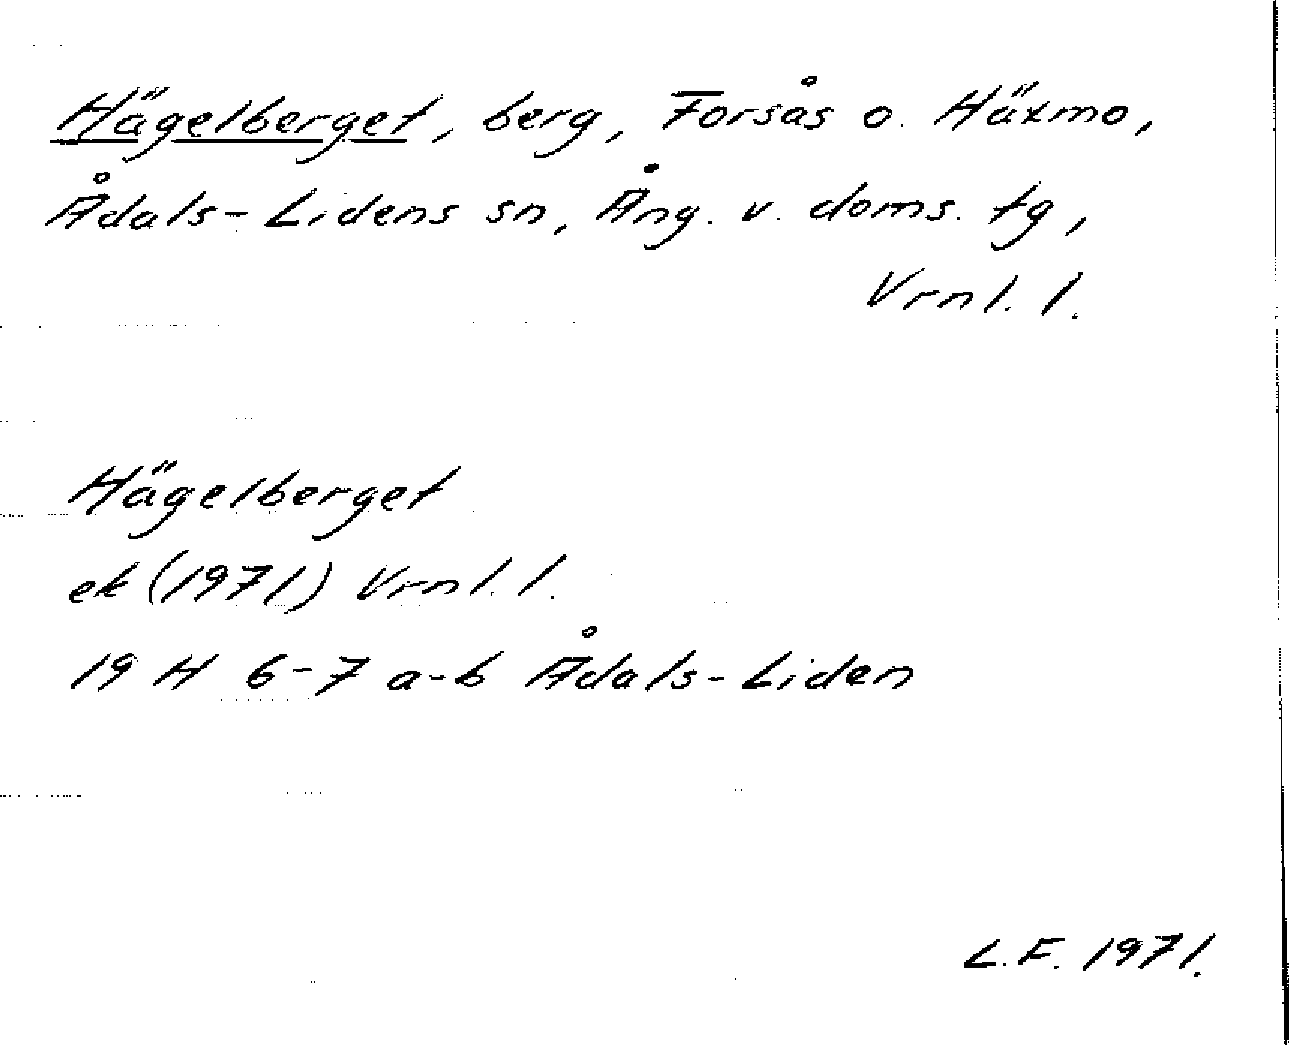 Hägelberget, berg, Forsås o. Häxmo,
Ådals-Lidens sn, Ång. v. doms. tg,
Vrnl. l.
Hägelberget
ek (1971) Vrnl. l.
19 H 6-7 a-b Ådals-Liden
L.F. 1971.